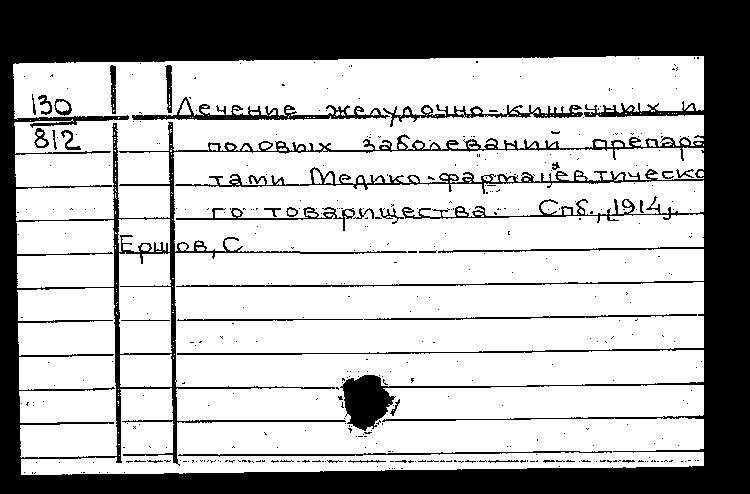 130 Лечение желудочно-кишечных и
812 половых заболеваний препара
тами Медико-фармацевтическо
го товарищества. Спб., [1914].
Ершов, С